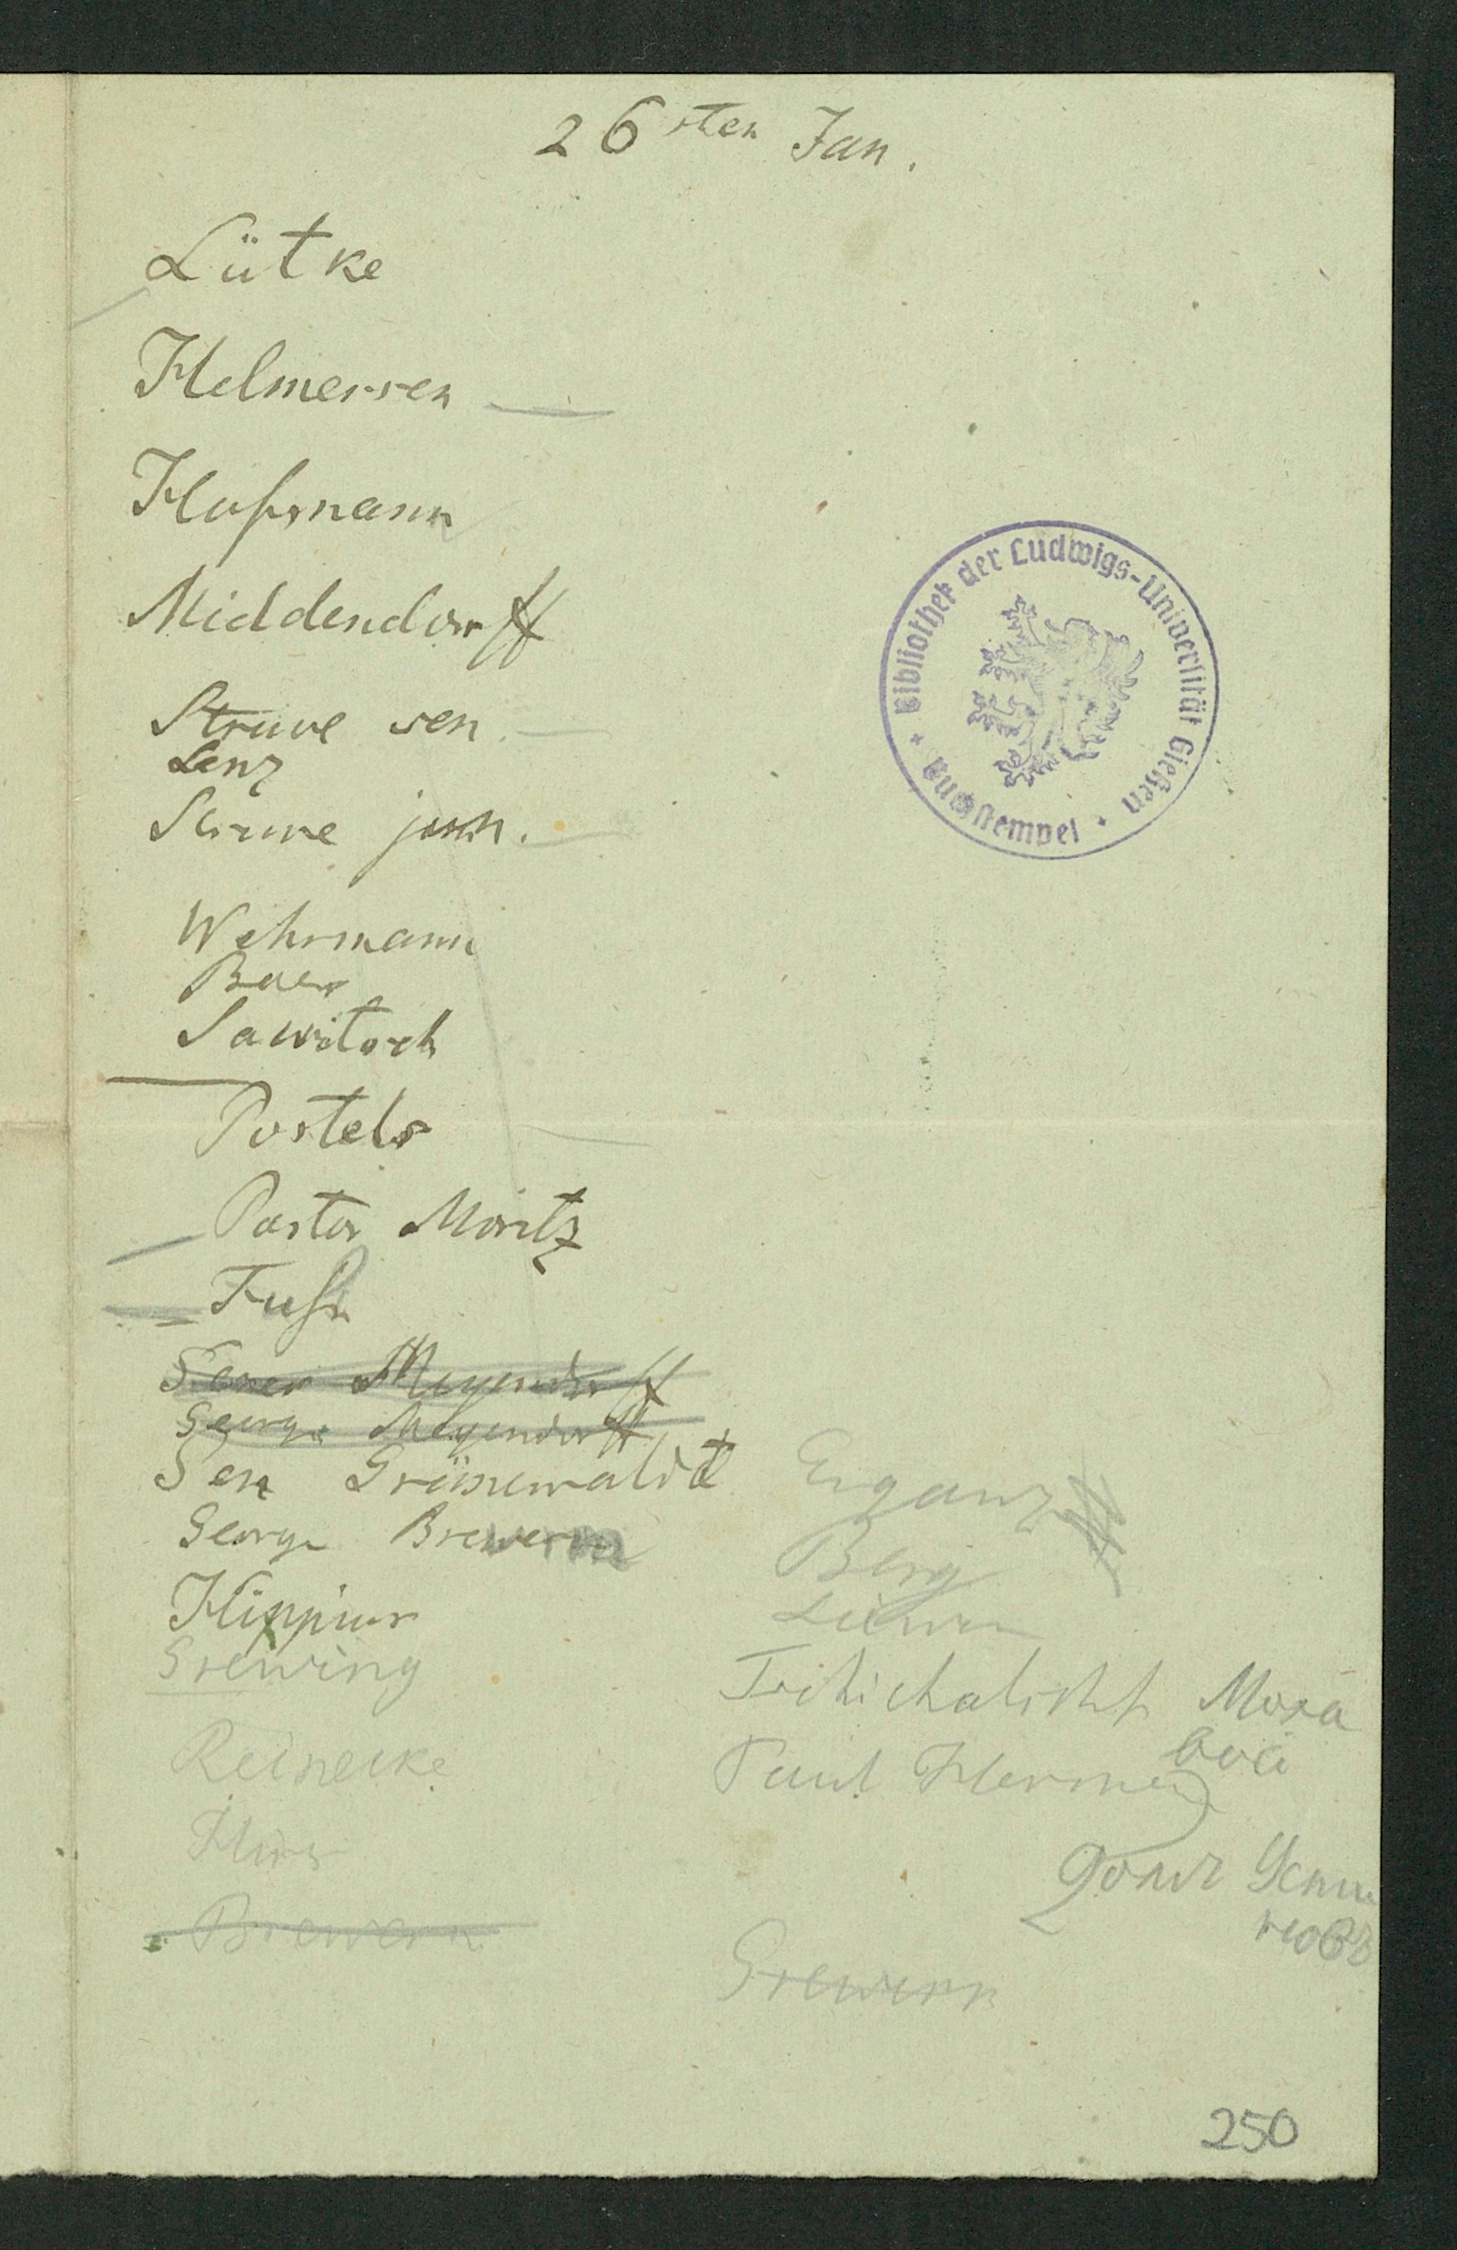 26sten Jan.
Lütke
Helmersen
Hofmann
Middendorff
Struve sen.
Lenz
Struve jun.
Wehrmann
Baer
Sawitsch
Postels
Pastor Moritz
Fuss
Meyendorff
George Meyendorff
Sen Grünewaldt
George Brevern
Hippius
Grewing
Reinecke
Brewern
Berg
Lieven
Paul
Mora
Grewern
Bibliothek der Ludwigs-Universität Gießen
Buchstempel
250